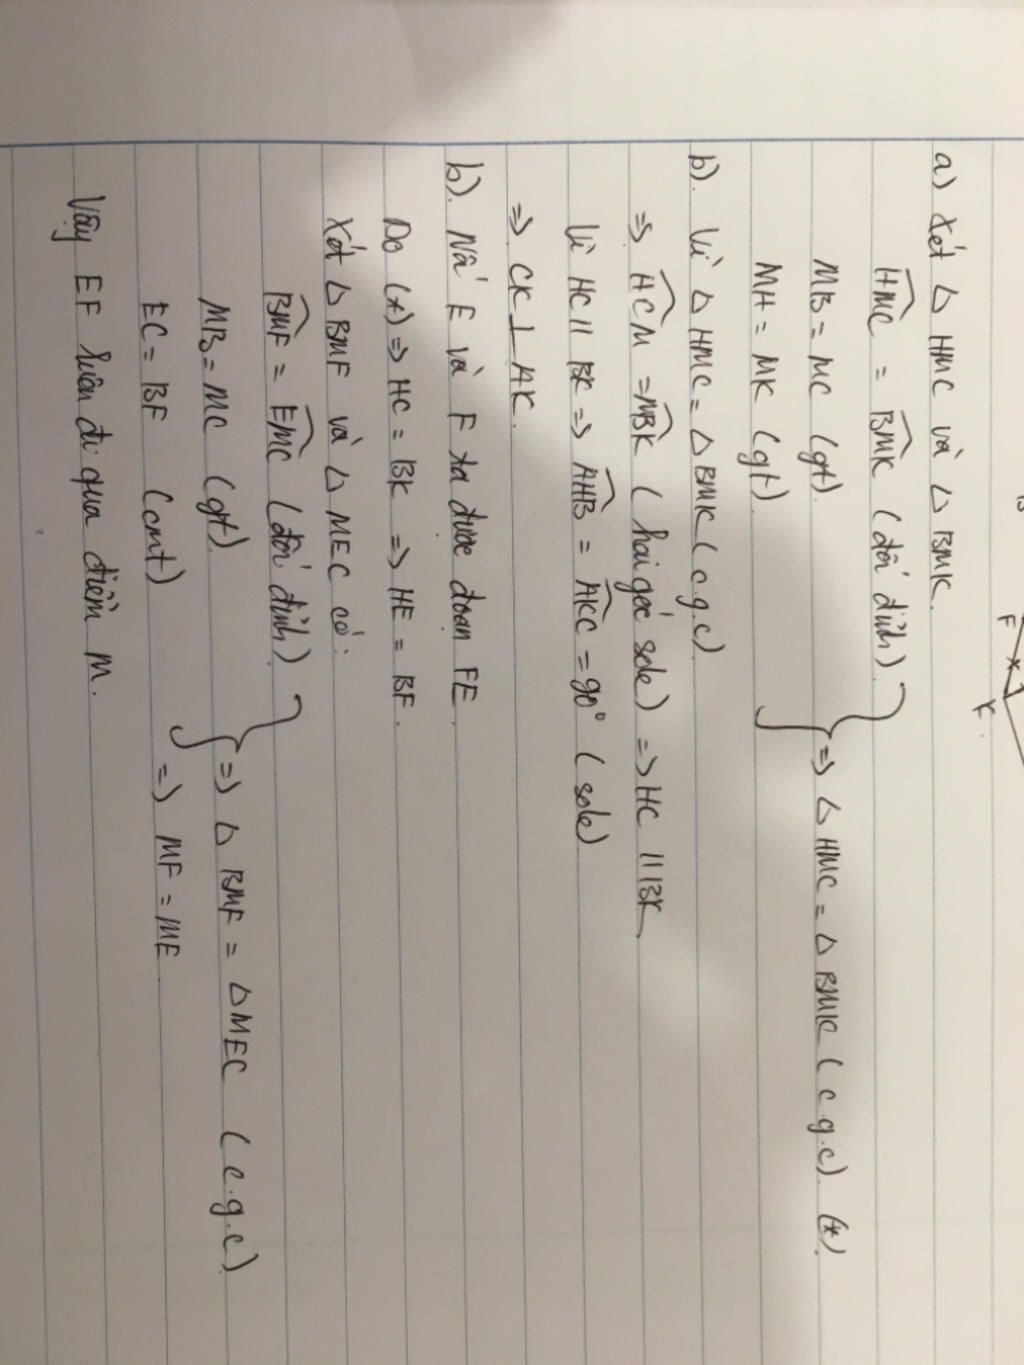 B
F
K.
a) Xét △ HMC và △ BMK.
HMC = BMK (đối đỉnh)
MB = MC (gt).
MH = MK (gt)
=> △ HMC = △ BMK (c.g.c). (*)
b). Vì △ HMC = △ BMK (c.g.c)
=> HCM = MBK (hai góc sole) => HC // BK
Vì HC // BK => AHB = AKC = 90° (sole)
=> CK ⊥ AK.
b). Nối E và F ta được đoạn FE.
Do (*) => HC = BK => HE = BF.
Xét △ BMF và △ MEC có:
BMF = EMC (đối đỉnh)
MB = MC (gt)
EC = BF (cmt)
=> △ BMF = △ MEC (c.g.c)
=> MF = ME
Vậy EF luôn đi qua điểm M.